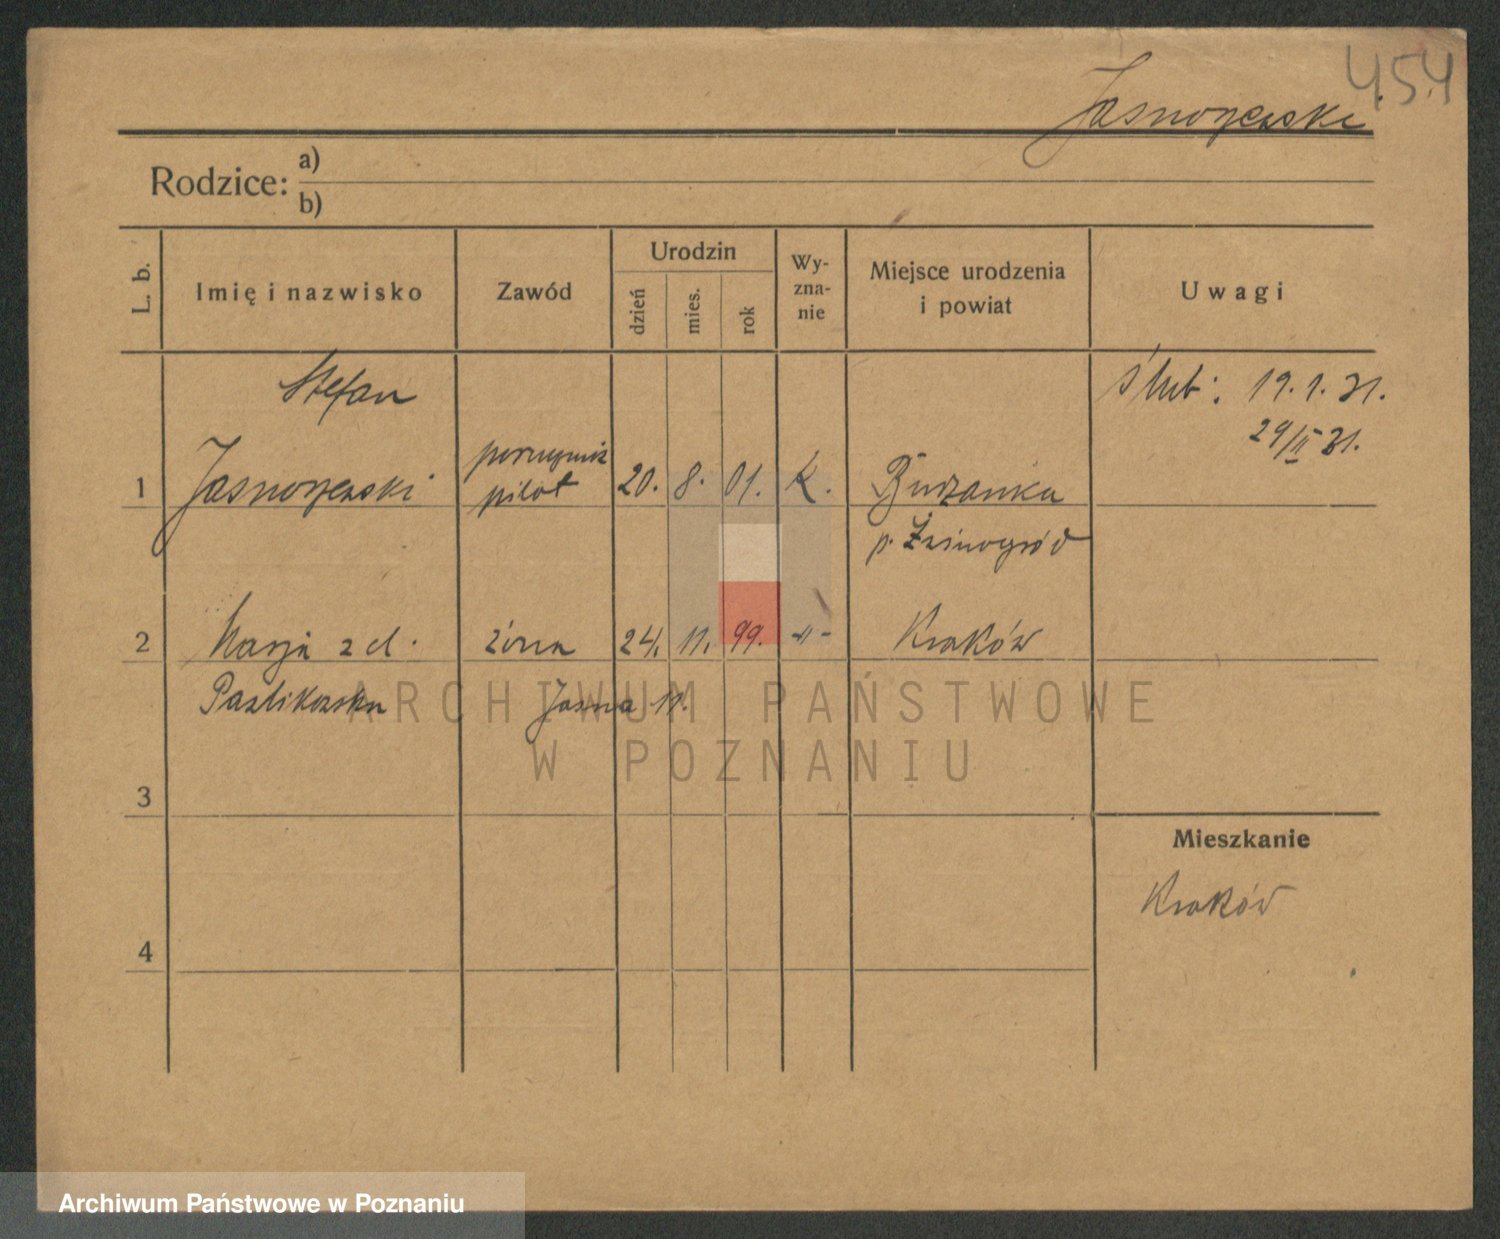 454
Jasnorzewski
Rodzice:
a)
b)
L. b.
Imię i nazwisko
Zawód
Urodzin
dzień
mies.
rok
Wy-
zna-
nie
Miejsce urodzenia
i powiat
Uwagi
Stefan
ślub: 19.1.31.
29/II 31.
1
Jasnorzewski
pilot
20.
8.
01.
k.
p. Zwinogród
2
Marja z d.
żona
24.
11.
99.
-"-
Kraków
Pawlikowska
Jasna 11.
ARCHIWUM PAŃSTWOWE
W POZNANIU
3
Mieszkanie
Kraków
4
Archiwum Państwowe w Poznaniu